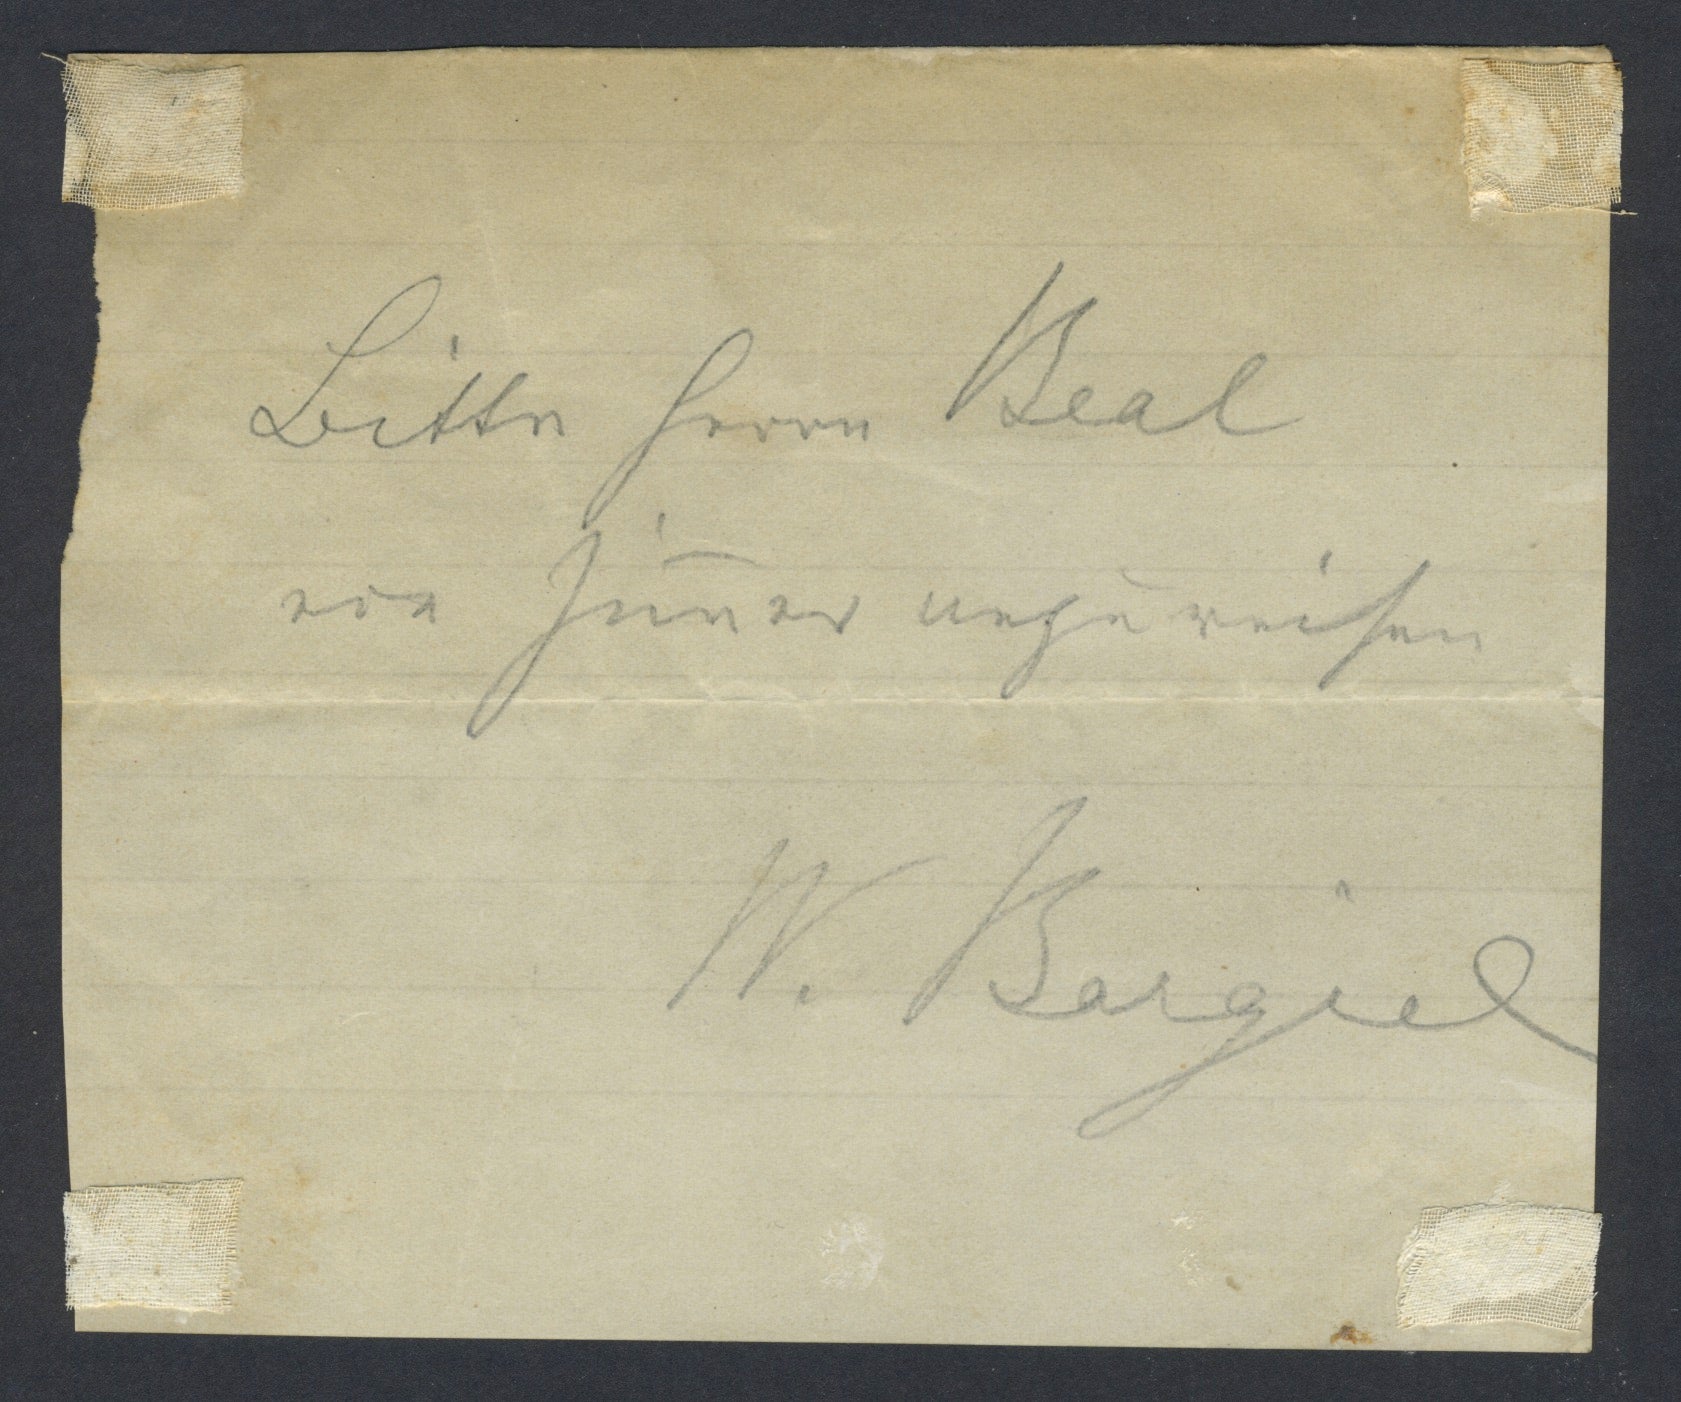 Bitte Herrn Beal
ein Zimmer anzuweisen
W. Bargiel